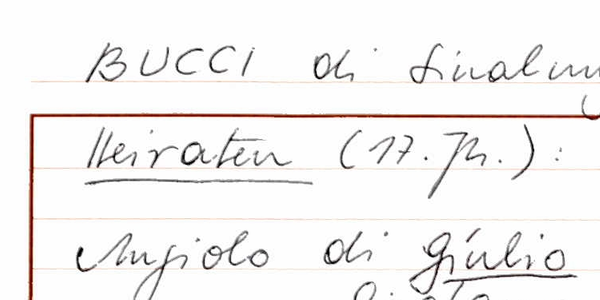 BUCCI di
Heiraten (17. Jh.):
Angiolo di Giulio